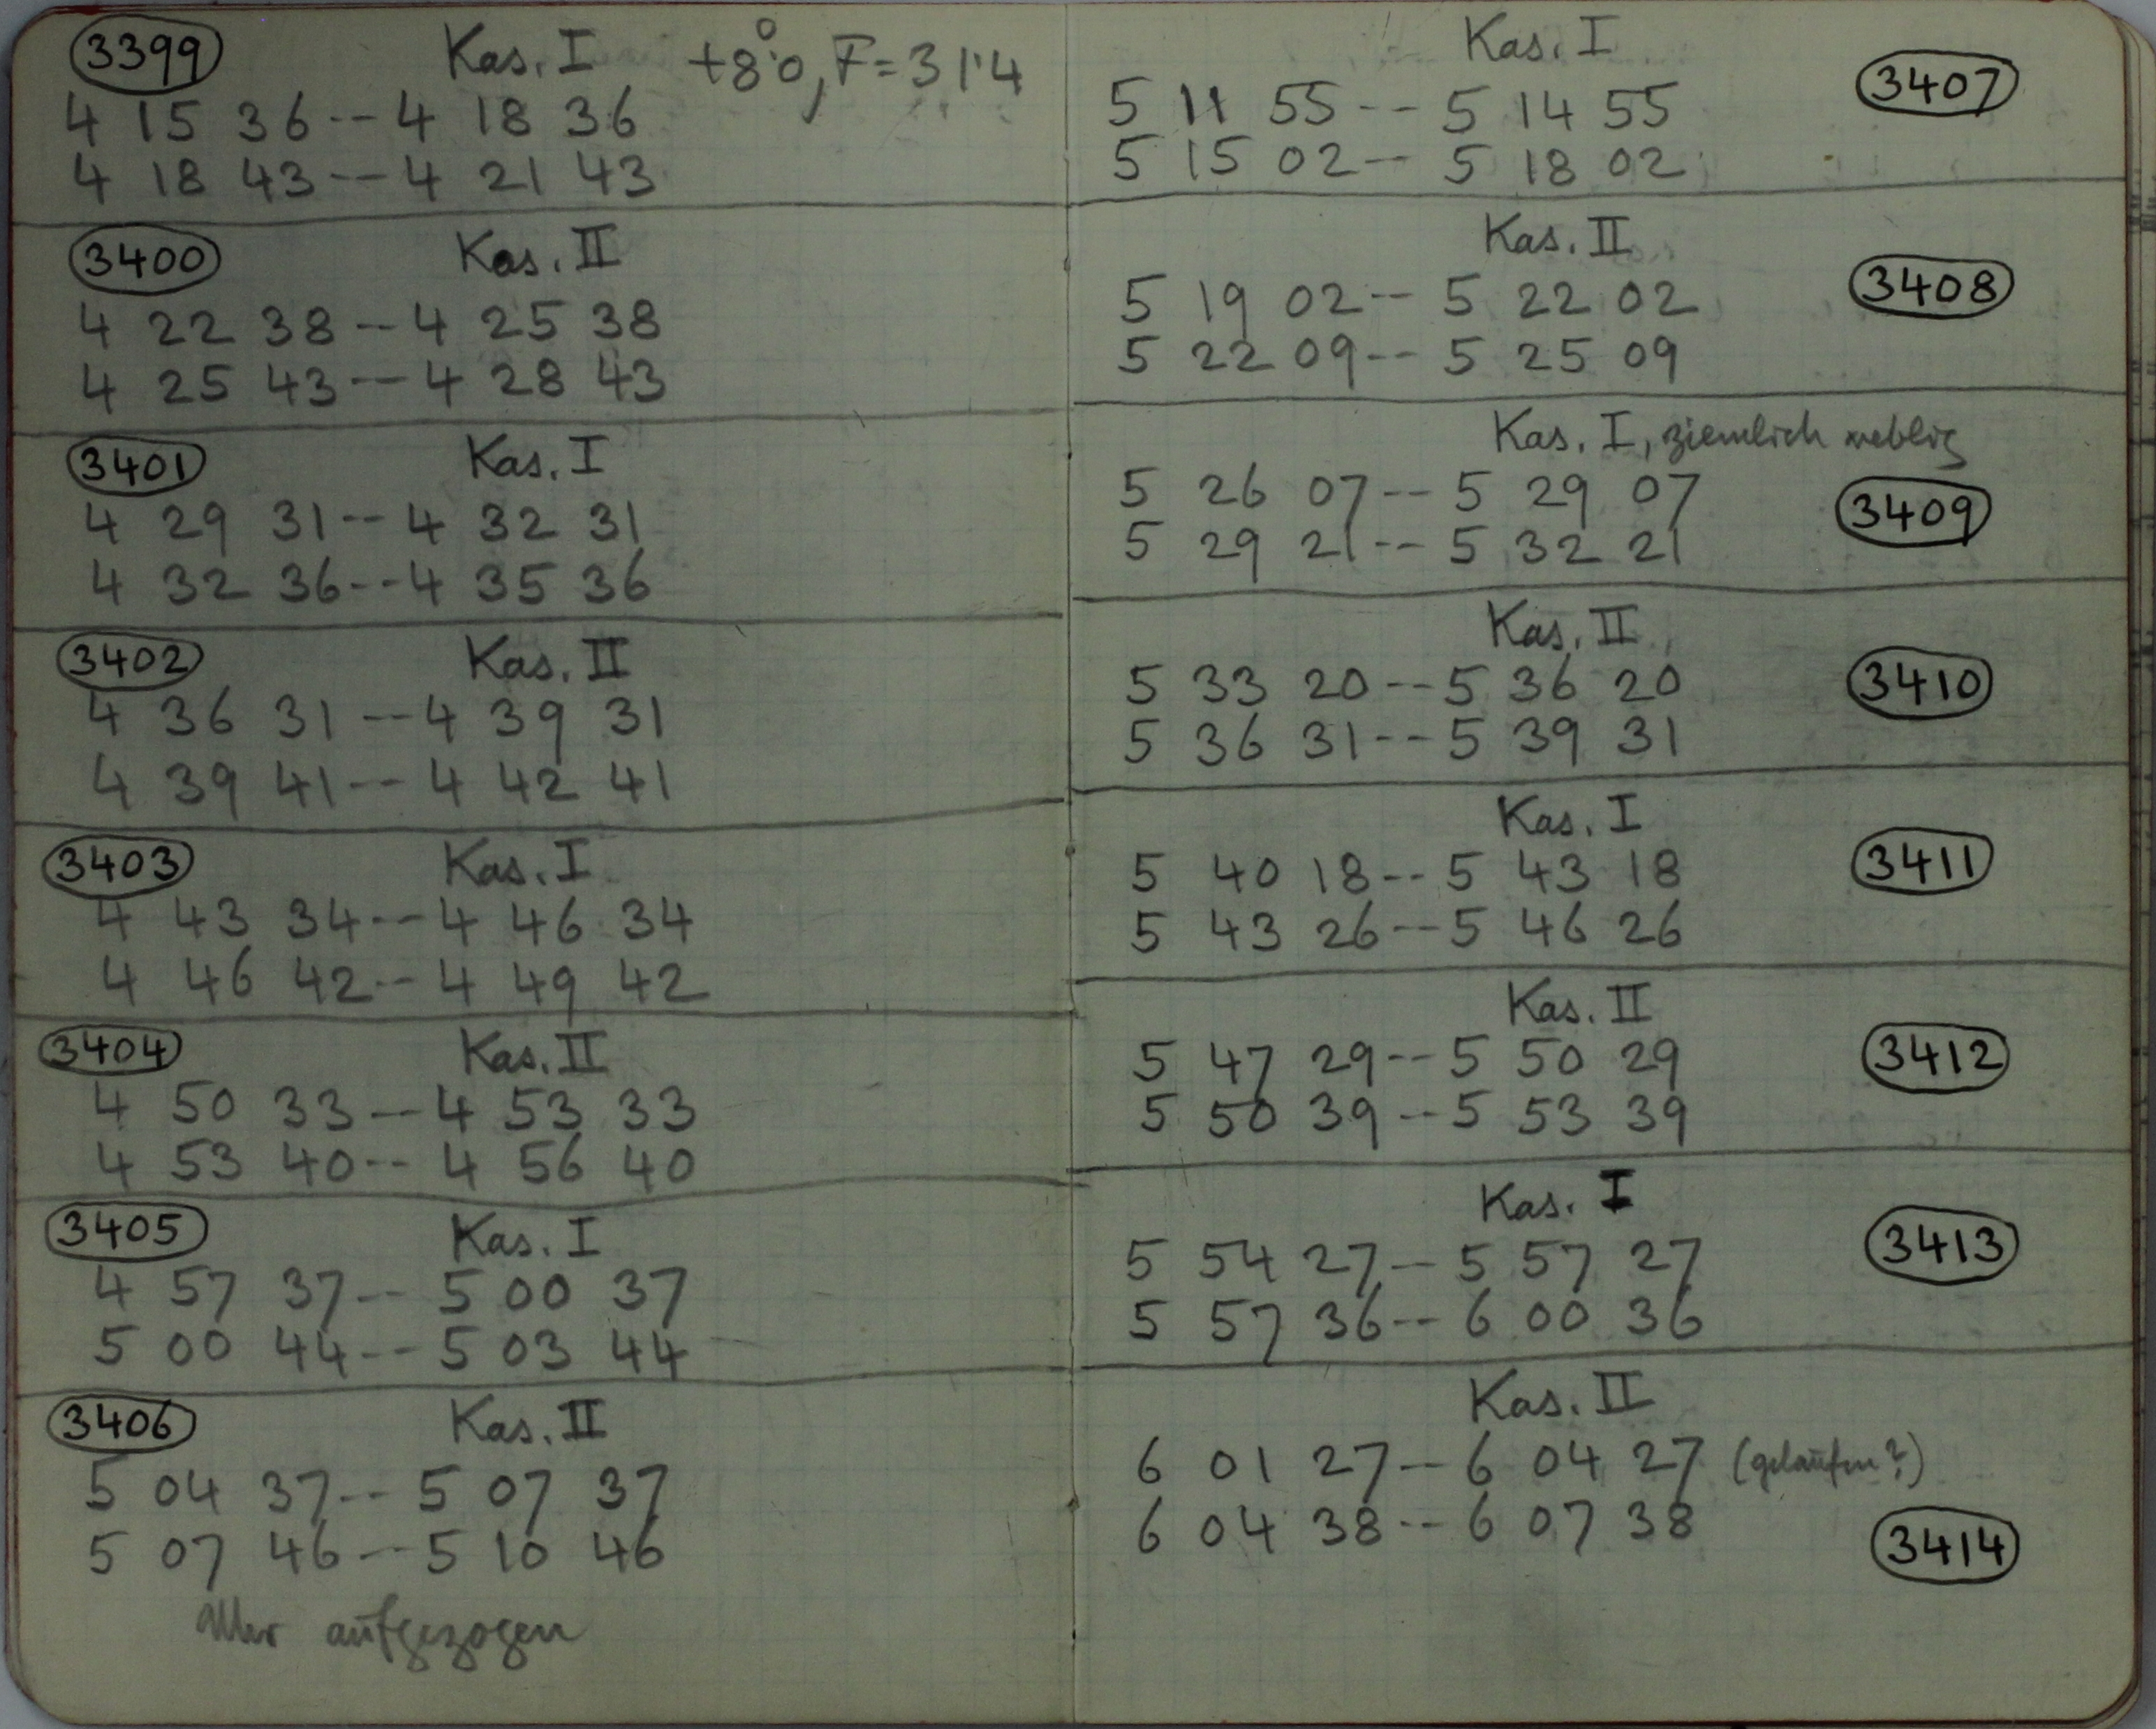 3399 Kas. I +8°.0, F=31.4
4 15 36 -- 4 18 36
4 18 43 -- 4 21 43
3400 Kas. II
4 22 38 -- 4 25 38
4 25 43 -- 4 28 43
3401 Kas. I
4 29 31 -- 4 32 31
4 32 36 -- 4 35 36
3402 Kas. II
4 36 31 -- 4 39 31
4 39 41 -- 4 42 41
3403 Kas. I
4 43 34 -- 4 46 34
4 46 42 -- 4 49 42
3404 Kas. II
4 50 33 -- 4 53 33
4 53 40 -- 4 56 40
3405 Kas. I
4 57 37 -- 5 00 37
5 00 44 -- 5 03 44
3406 Kas. II
5 04 37 -- 5 07 37
5 07 46 -- 5 10 46
Uhr aufgezogen
Kas. I
3407
5 11 55 -- 5 14 55
5 15 02 -- 5 18 02
Kas. II
3408
5 19 02 -- 5 22 02
5 22 09 -- 5 25 09
Kas. I, ziemlich neblig
5 26 07 -- 5 29 07
3409
5 29 21 -- 5 32 21
Kas. II
5 33 20 -- 5 36 20
3410
5 36 31 -- 5 39 31
Kas. I
5 40 18 -- 5 43 18
3411
5 43 26 -- 5 46 26
Kas. II
5 47 29 -- 5 50 29
3412
5 50 39 -- 5 53 39
Kas. I
5 54 27 -- 5 57 27
3413
5 57 36 -- 6 00 36
Kas. II
6 01 27 -- 6 04 27 (gelaufen?)
6 04 38 -- 6 07 38
3414